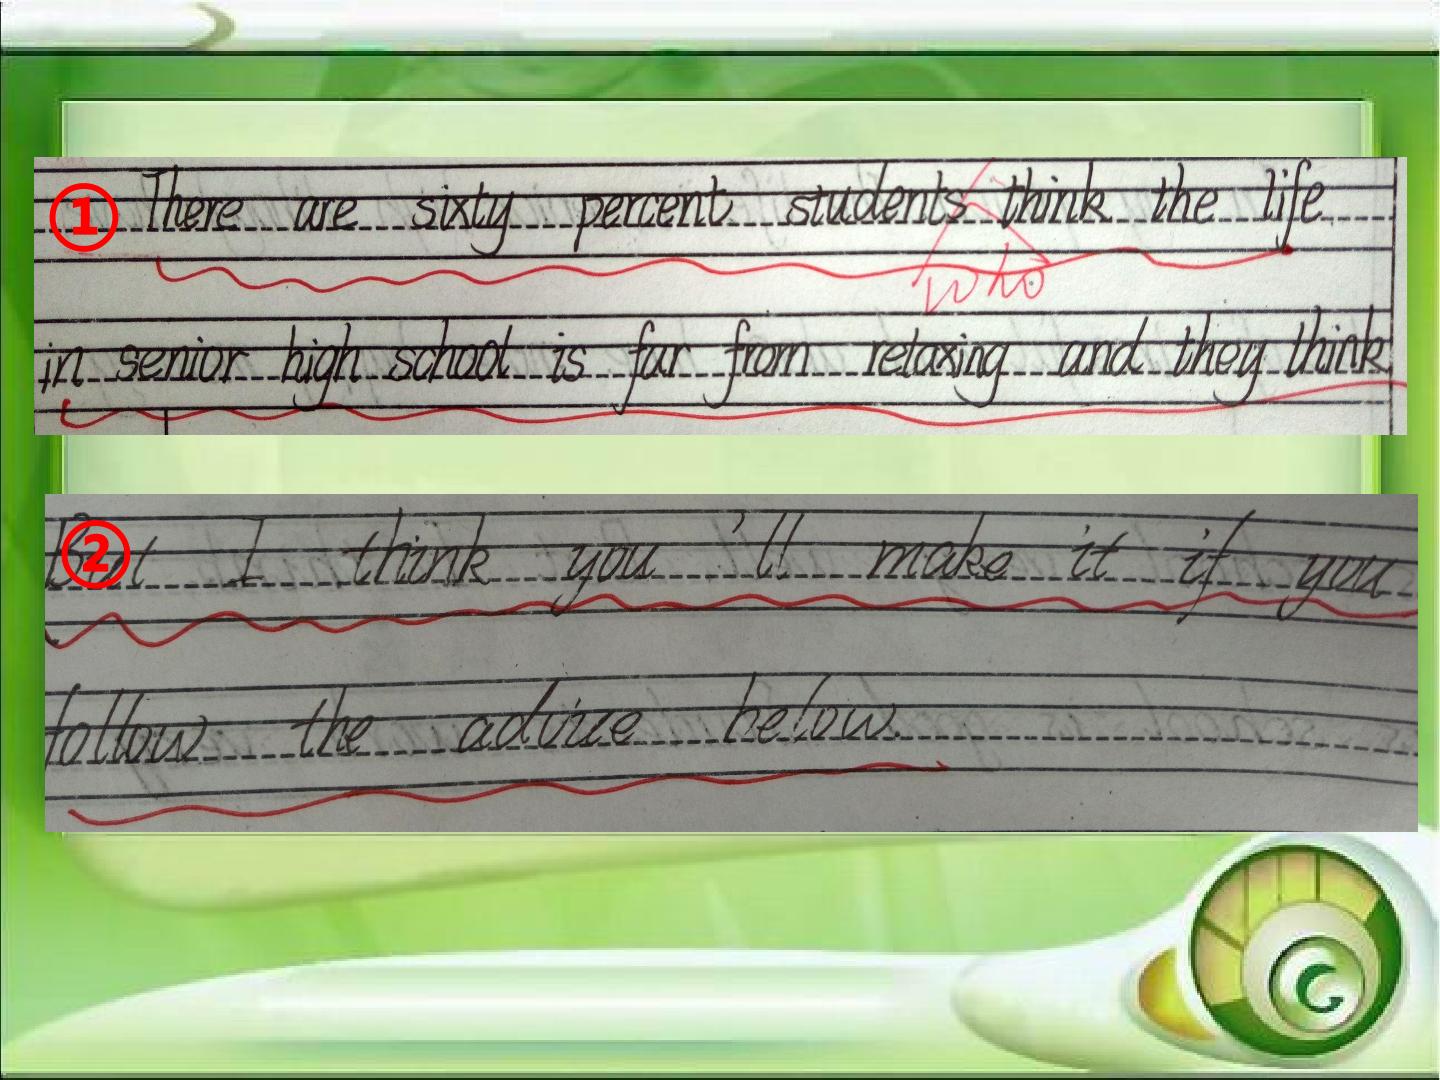 ① There are sixty percent students think the life
who
in senior high school is far from relaxing and they think
② But I think you'll make it if you
follow the advice below.